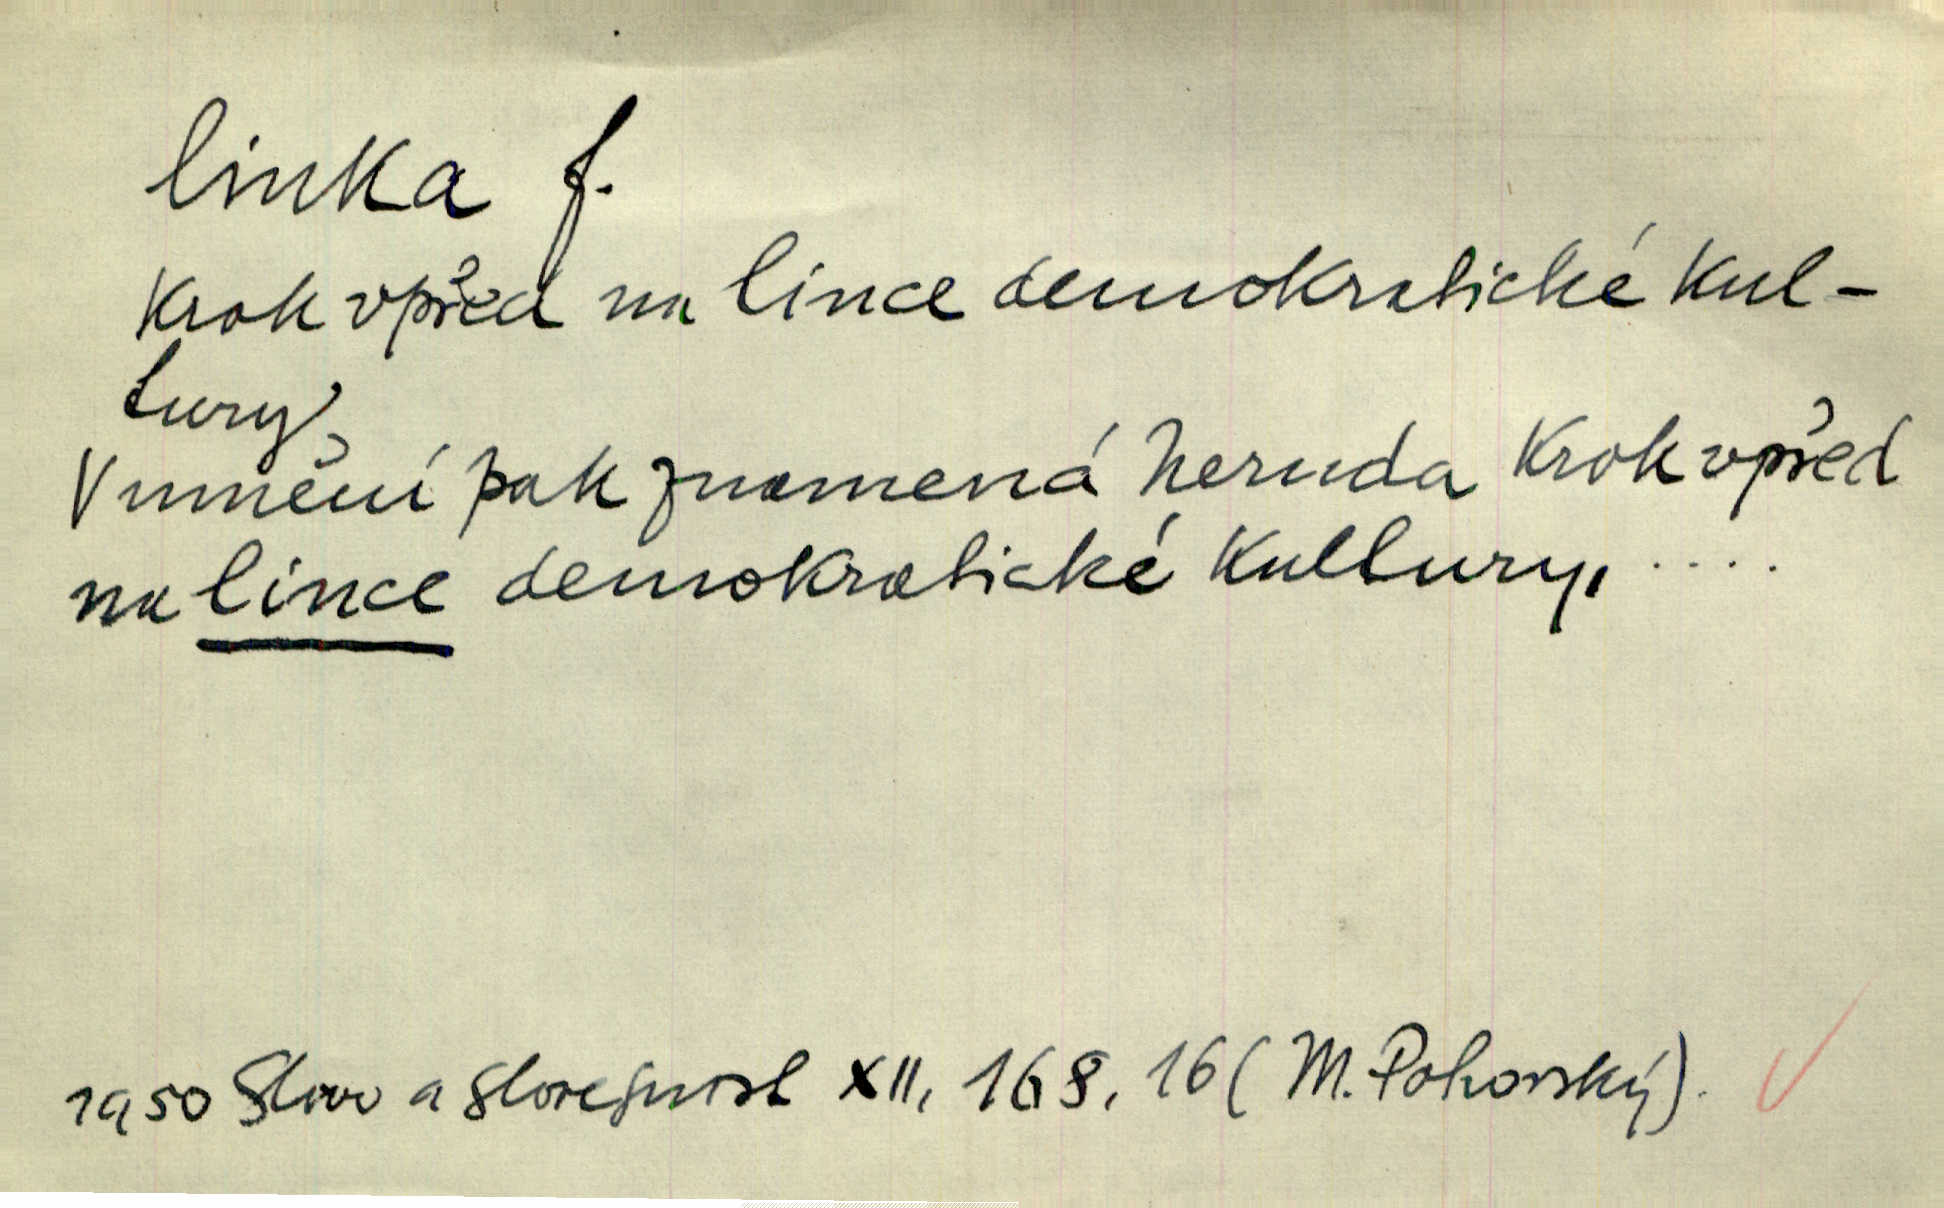 linka f.
Krok vpřed na lince demokratické kul-
tury
V umění pak znamená Neruda krok vpřed
na lince demokratické kultury, ....
1950 Slovo a slovesnost XII, 168, 16 (M. Pohorský).